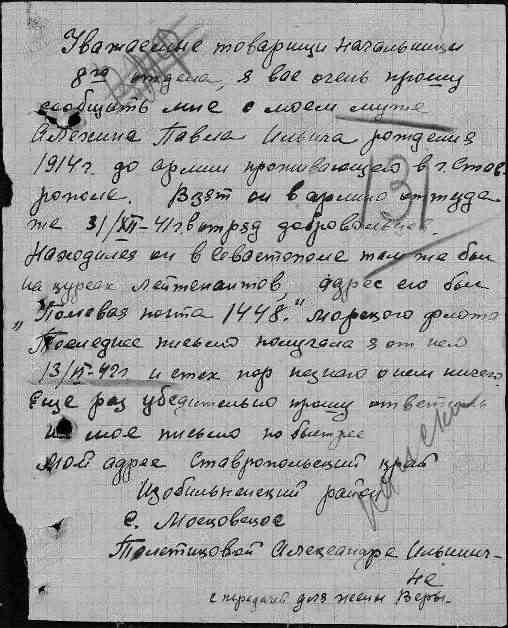 Уважаемые товарищи начальники
8го отдела, я вас очень прошу
сообщить мне о моем муже
Алехина Павла Ильича рождения
1914г. до армии проживающего в г. Став-
рополе. Взят он в армию оттуда-
же 3/XII-41г. в отряд добровольцев.
Находился он в Севастополе там же был
на курсах лейтенантов, адрес его был
"Полевая почта 1448." морского флота
Последнее письмо получала я от него
13/VI-42г и с тех пор незнаю о нем ничего.
Еще раз убедительно прошу ответить
на мое письмо по быстрее
Мой адрес Ставропольский край
Изобильненский район
с. Московское
Александре Ильинич-
не
с передачей для жены Веры.
131